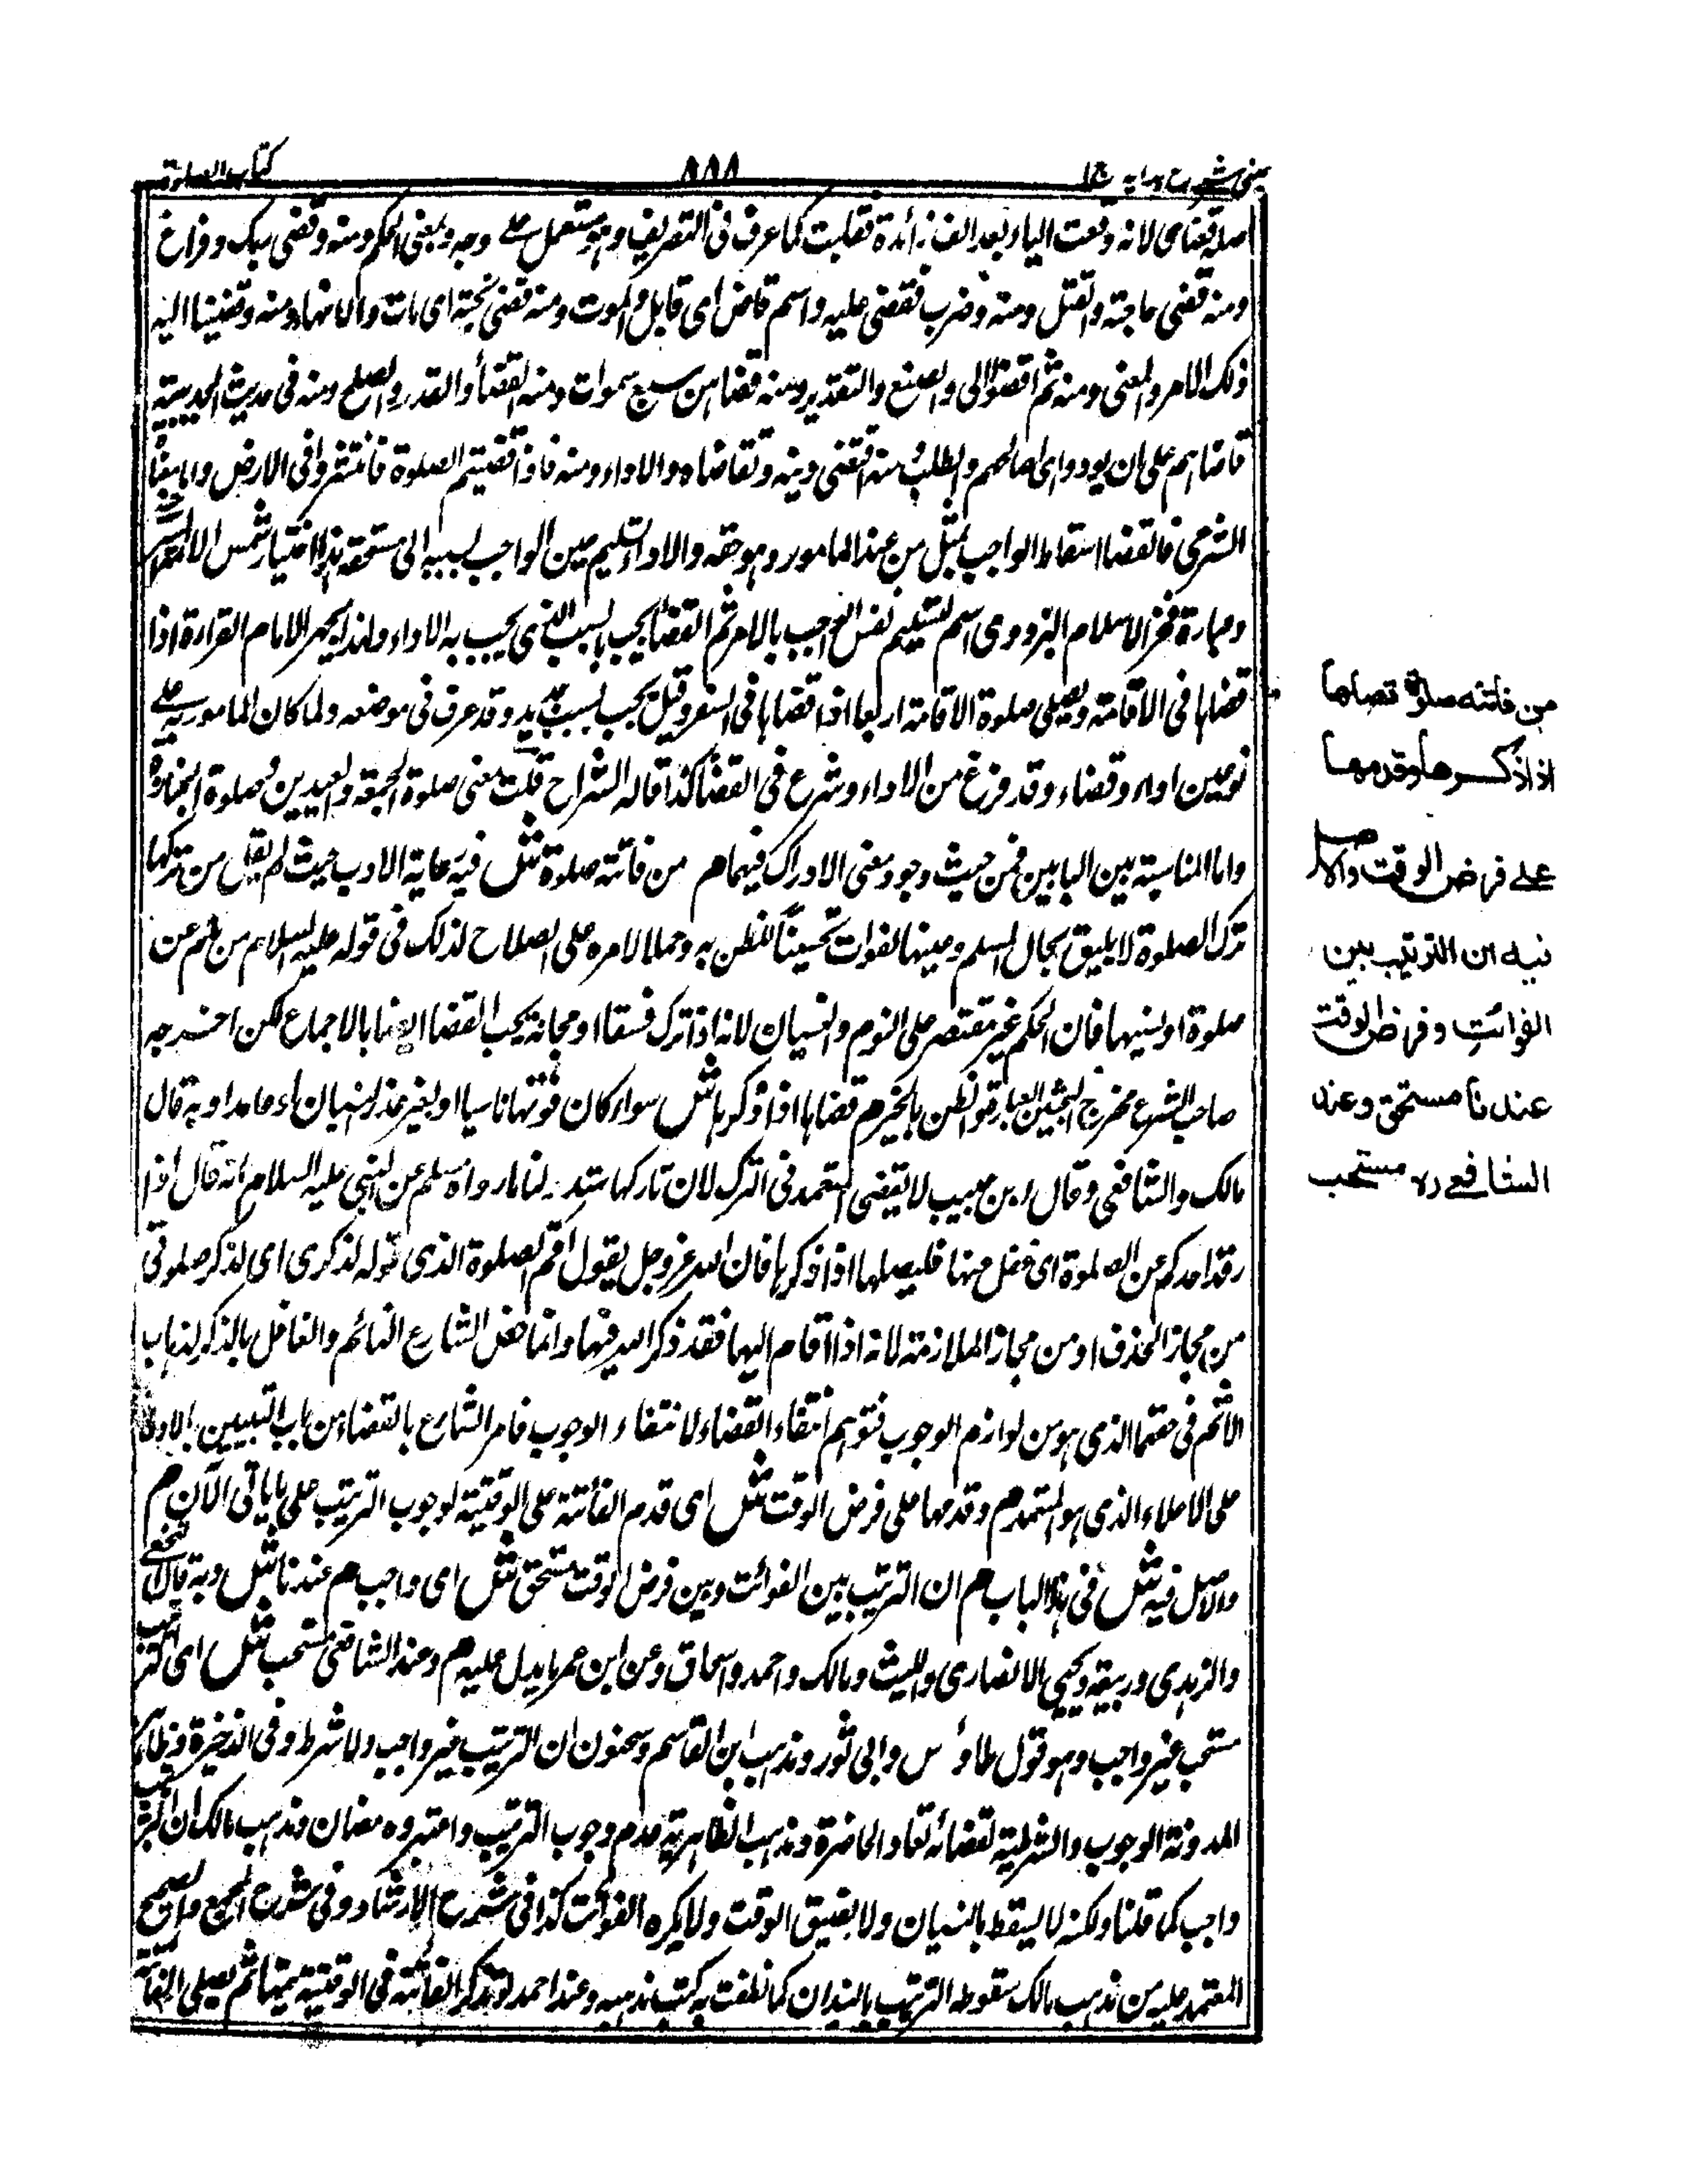 عینی شرح هدایه ج ١
٨٨٨
کتاب الصلوة
اصله قضای لانه وقعت الیاء بعد الف زائدة فقلبت کما عرف فی التصریف وهو مستعمل علی وجوه بمعنی الحکم ومنه وقضی ربک وفراغ
ومنه قضی حاجته والقتل ومنه وضرب فقضی علیه واسم قاض ای قاتل والموت ومنه قضی نحبه ای مات والانهاء ومنه وقضینا الیه
ذلک الامر والمعنی ومنه ثم اقضوا الی والصنع والتقدیر ومنه قضاهن سبع سموات ومنه القضاء والقدر والصلح ومنه فی حدیث الحدیبیة
قاضاهم علی ان یعودوا ای صالحهم والطلب ومنه اقتضی دینه وتقاضاه والاداء ومنه فاذا قضیتم الصلوة فانتشروا فی الارض واما معناه
الشرعی فالقضاء اسقاط الواجب بمثل من عند المامور وهو حقه والاداء تسلیم عین الواجب بسببه الی مستحقه هذا اختیار شمس الائمة السرخسی
وعبارة فخر الاسلام البزدوی اسم لتسلیم نفس الواجب بالامر ثم القضاء یجب بالسبب الذی یجب به الاداء ولهذا یجهر الامام القراءة اذا
قضاها فی الاقامة ویصلی صلوة الاقامة اربعا اذا قضاها فی السفر وقیل یجب بسبب جدید وقد عرف فی موضعه ولما کان المامور به علی
نوعین اداء وقضاء وقد فرغ من الاداء وشرع فی القضاء کذا قاله الشراح قلت معنی صلوة الجمعة والعیدین وصلوة الجنازة
واما المناسبة بین البابین فمن حیث وجود معنی الادراک فیهما م من فاتته صلوة ش فیه رعایة الادب حیث لم یقل من ترکها
ترک الصلوة لا یلیق بحال المسلم وعینها لفوات تحسیناً للظن به وحملا لامره علی الصلاح لذلک فی قوله علیه السلام من نام عن
صلوة او نسیها فان الحکم غیر مقتصر علی النوم والنسیان لانه اذا ترک فسقا او مجانة یجب القضاء ایضا بالاجماع لکن اخرجه
صاحب الشرع مخرج العبارة والظن بالخیر م قضاها اذا ذکرها ش سواء کان فوتها ناسیا او لغیر عذر النسیان او عامدا وبه قال
مالک والشافعی وقال ابن حبیب لا یقضی المتعمد فی الترک لان تارکها مرتد لنا ما رواه مسلم عن النبی علیه السلام انه قال اذا
رقد احدکم عن الصلوة ای غفل عنها فلیصلها اذا ذکرها فان الله عز وجل یقول اقم الصلوة الذی قوله لذکری ای لذکر صلوتی
من مجاز الحذف او من مجاز الملازمة لانه اذا اقام الیها فقد ذکر الله فیها وانما خص الشارع النائم والغافل بالذکر لذهاب
الاثم فی حقهما الذی هو من لوازم الوجوب فتوهم انتفاء القضاء لانتفاء الوجوب فامر الشارع بالقضاء من باب التبیین بالادنی
علی الاعلاء الذی هو المتعمد م وقدمها علی فرض الوقت ش ای قدم الفائتة علی الوقتیة لوجوب الترتیب علی ما یاتی الآن م
والاصل فیه ش فی هذا الباب م ان الترتیب بین الفوائت وبین فرض الوقت مستحق ش ای واجب م عندنا ش وبه قال النخعی
والزهری وربیعة ویحیی الانصاری واللیث ومالک واحمد واسحاق وعن ابن عمر ما یدل علیه م وعند الشافعی مستحب ش ای الترتیب
مستحب غیر واجب وهو قول طاؤس وابی ثور ومذهب ابن القاسم وسحنون ان الترتیب غیر واجب ولا شرط وفی الذخیرة وظاهر
المدونة الوجوب والشرطیة لقضائه لفساد الحاضرة ومذهب الظاهریة عدم وجوب الترتیب ومذهب مالک ان الترتیب
واجب کما قلنا ولکنه لا یسقط بالنسیان ولا بضیق الوقت ولا بکثرة الفوائت کذا فی شرح الارشاد وفی شرح المجمع والصحیح
المعتمد علیه من مذهب مالک سقوطه الترتیب بالنسیان کما نطقت به کتب مذهبه وعند احمد لو تذکر الفائتة فی الوقتیة یتمها ثم یصلی الفائتة
من فاتته صلوة قضاها
اذا ذکرها وقدمها
علی فرض الوقت والاصل
فیه ان الترتیب بین
الفوائت وفرض الوقت
عندنا مستحق وعند
الشافعی رح مستحب